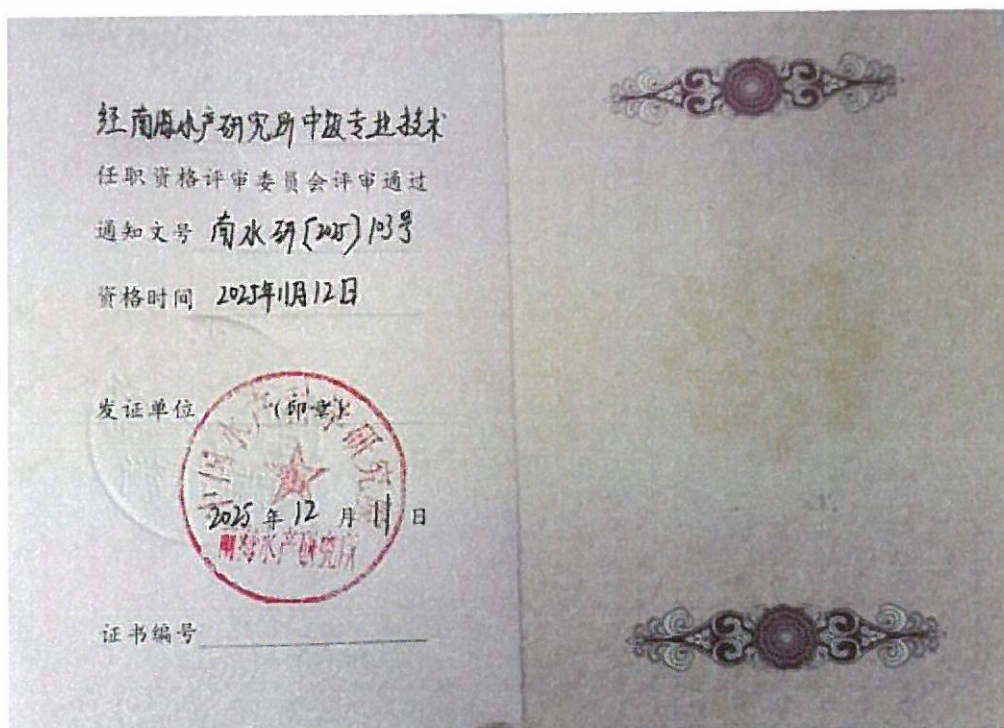 经南海水产研究所中级专业技术
任职资格评审委员会评审通过
通知文号 南水研〔2025〕103号
资格时间 2025年11月12日
发证单位 (印章)
中国水产科学研究院
2025年12月11日
南海水产研究所
证书编号